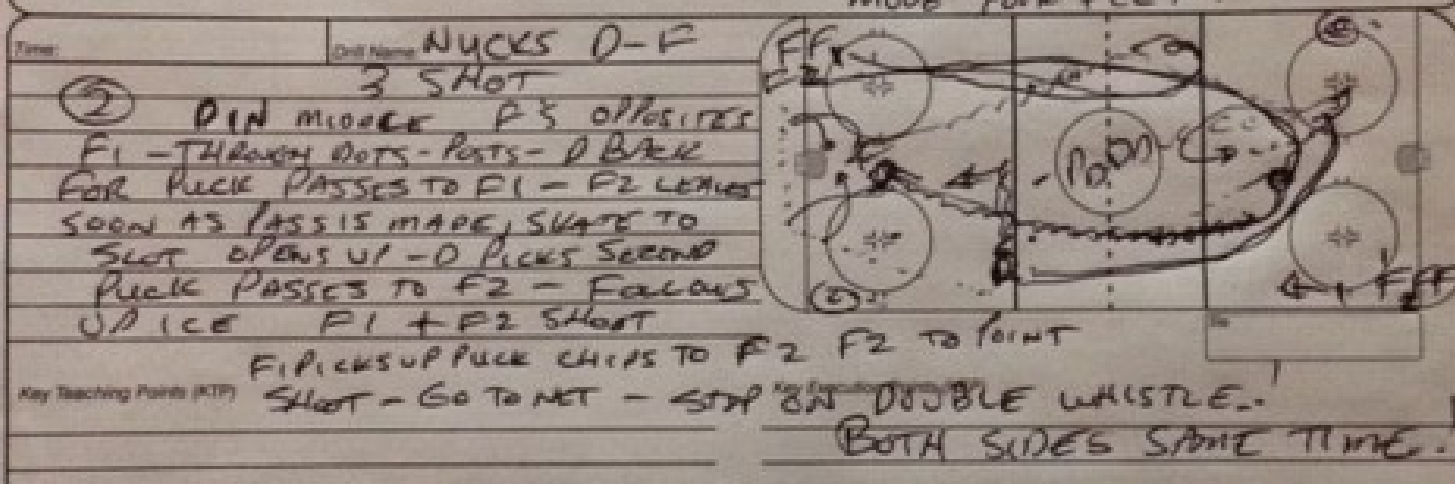 Time: Drill Name: NUCKS D-F
3 SHOT
2 D IN MIDDLE F'S OPPOSITES
F1 - THROUGH DOTS - POSTS - D BACK
FOR PUCK PASSES TO F1 - F2 LEAVES
SOON AS PASS IS MADE, SKATE TO
SLOT OPENS UP - D PICKS SECOND
PUCK PASSES TO F2 - FOLLOWS
UP ICE F1 + F2 SHOOT
F1 PICKS UP PUCK CHIPS TO F2 F2 TO POINT
Key Teaching Points (KTP) SHOOT - GO TO NET - STOP ON DOUBLE WHISTLE..
BOTH SIDES SAME TIME..
FF